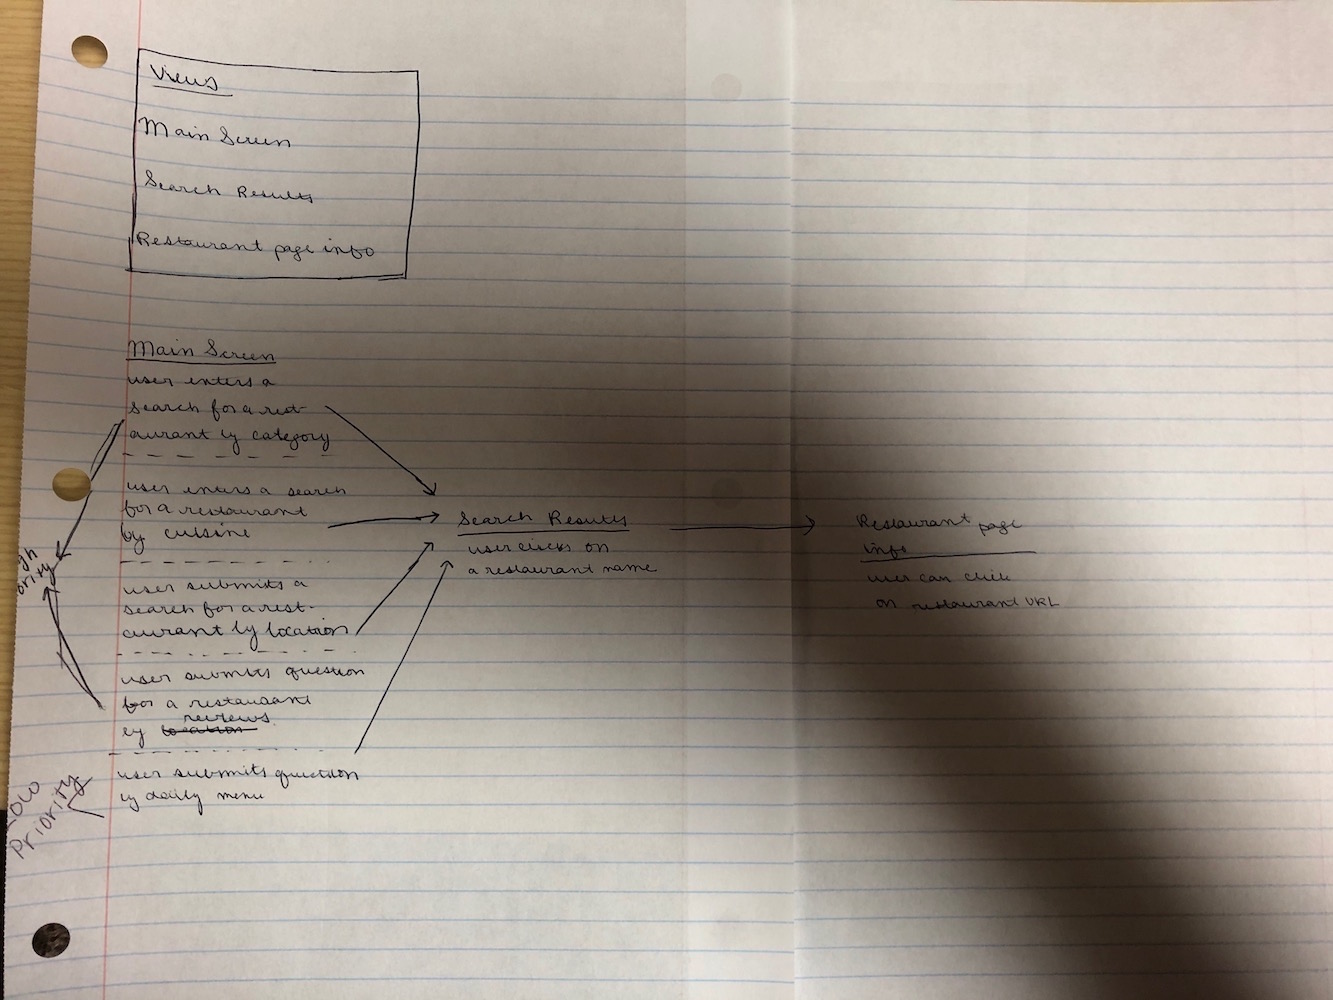 Views
Main Screen
Search Results
Restaurant page info
Main Screen
user enters a
search for a rest-
aurant by category
user enters a search
for a restaurant
by cuisine
user submits a
search for a rest-
aurant by location
user submits question
for a restaurant
reviews
by location
user submits question
by daily menu
gh
ority
Low
Priority
Search Results
user clicks on
a restaurant name
Restaurant page
info
user can click
on restaurant URL